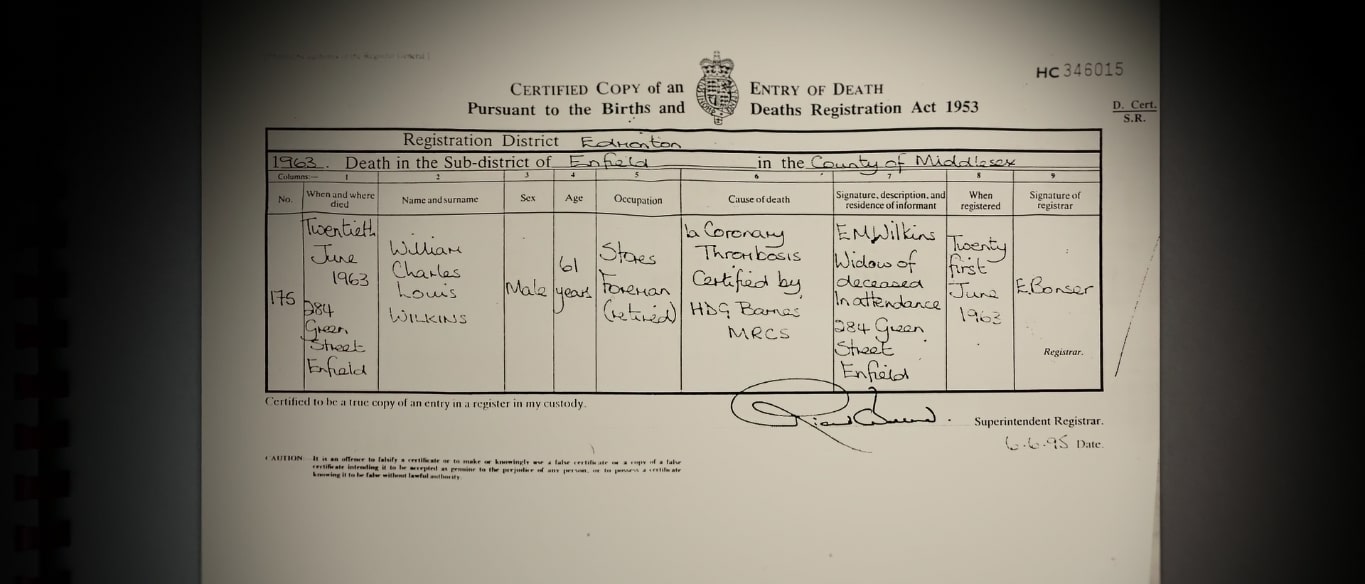 HC 346015
CERTIFIED COPY of an ENTRY OF DEATH
Pursuant to the Births and Deaths Registration Act 1953
D. Cert.
S.R.
Registration District Edmonton
1963. Death in the Sub-district of Enfield in the County of Middlesex
Columns:— 1 2 3 4 5 6 7 8 9
No. When and where died Name and surname Sex Age Occupation Cause of death Signature, description, and residence of informant When registered Signature of registrar
175
Twentieth
June
1963
284
Green
Street
Enfield
William
Charles
Louis
WILKINS
Male
61
years
Stores
Foreman
(retired)
1a Coronary
Thrombosis
Certified by
HDG Barnes
MRCS
E M Wilkins
Widow of
deceased
In attendance
284 Green
Street
Enfield
Twenty
first
June
1963
E. Bonser
Registrar.
Certified to be a true copy of an entry in a register in my custody.
Superintendent Registrar.
6.6.95 Date.
CAUTION It is an offence to falsify a certificate or to make or knowingly use a false certificate or a copy of a false
certificate intending it to be accepted as genuine to the prejudice of any person, or to possess a certificate
knowing it to be false without lawful authority.